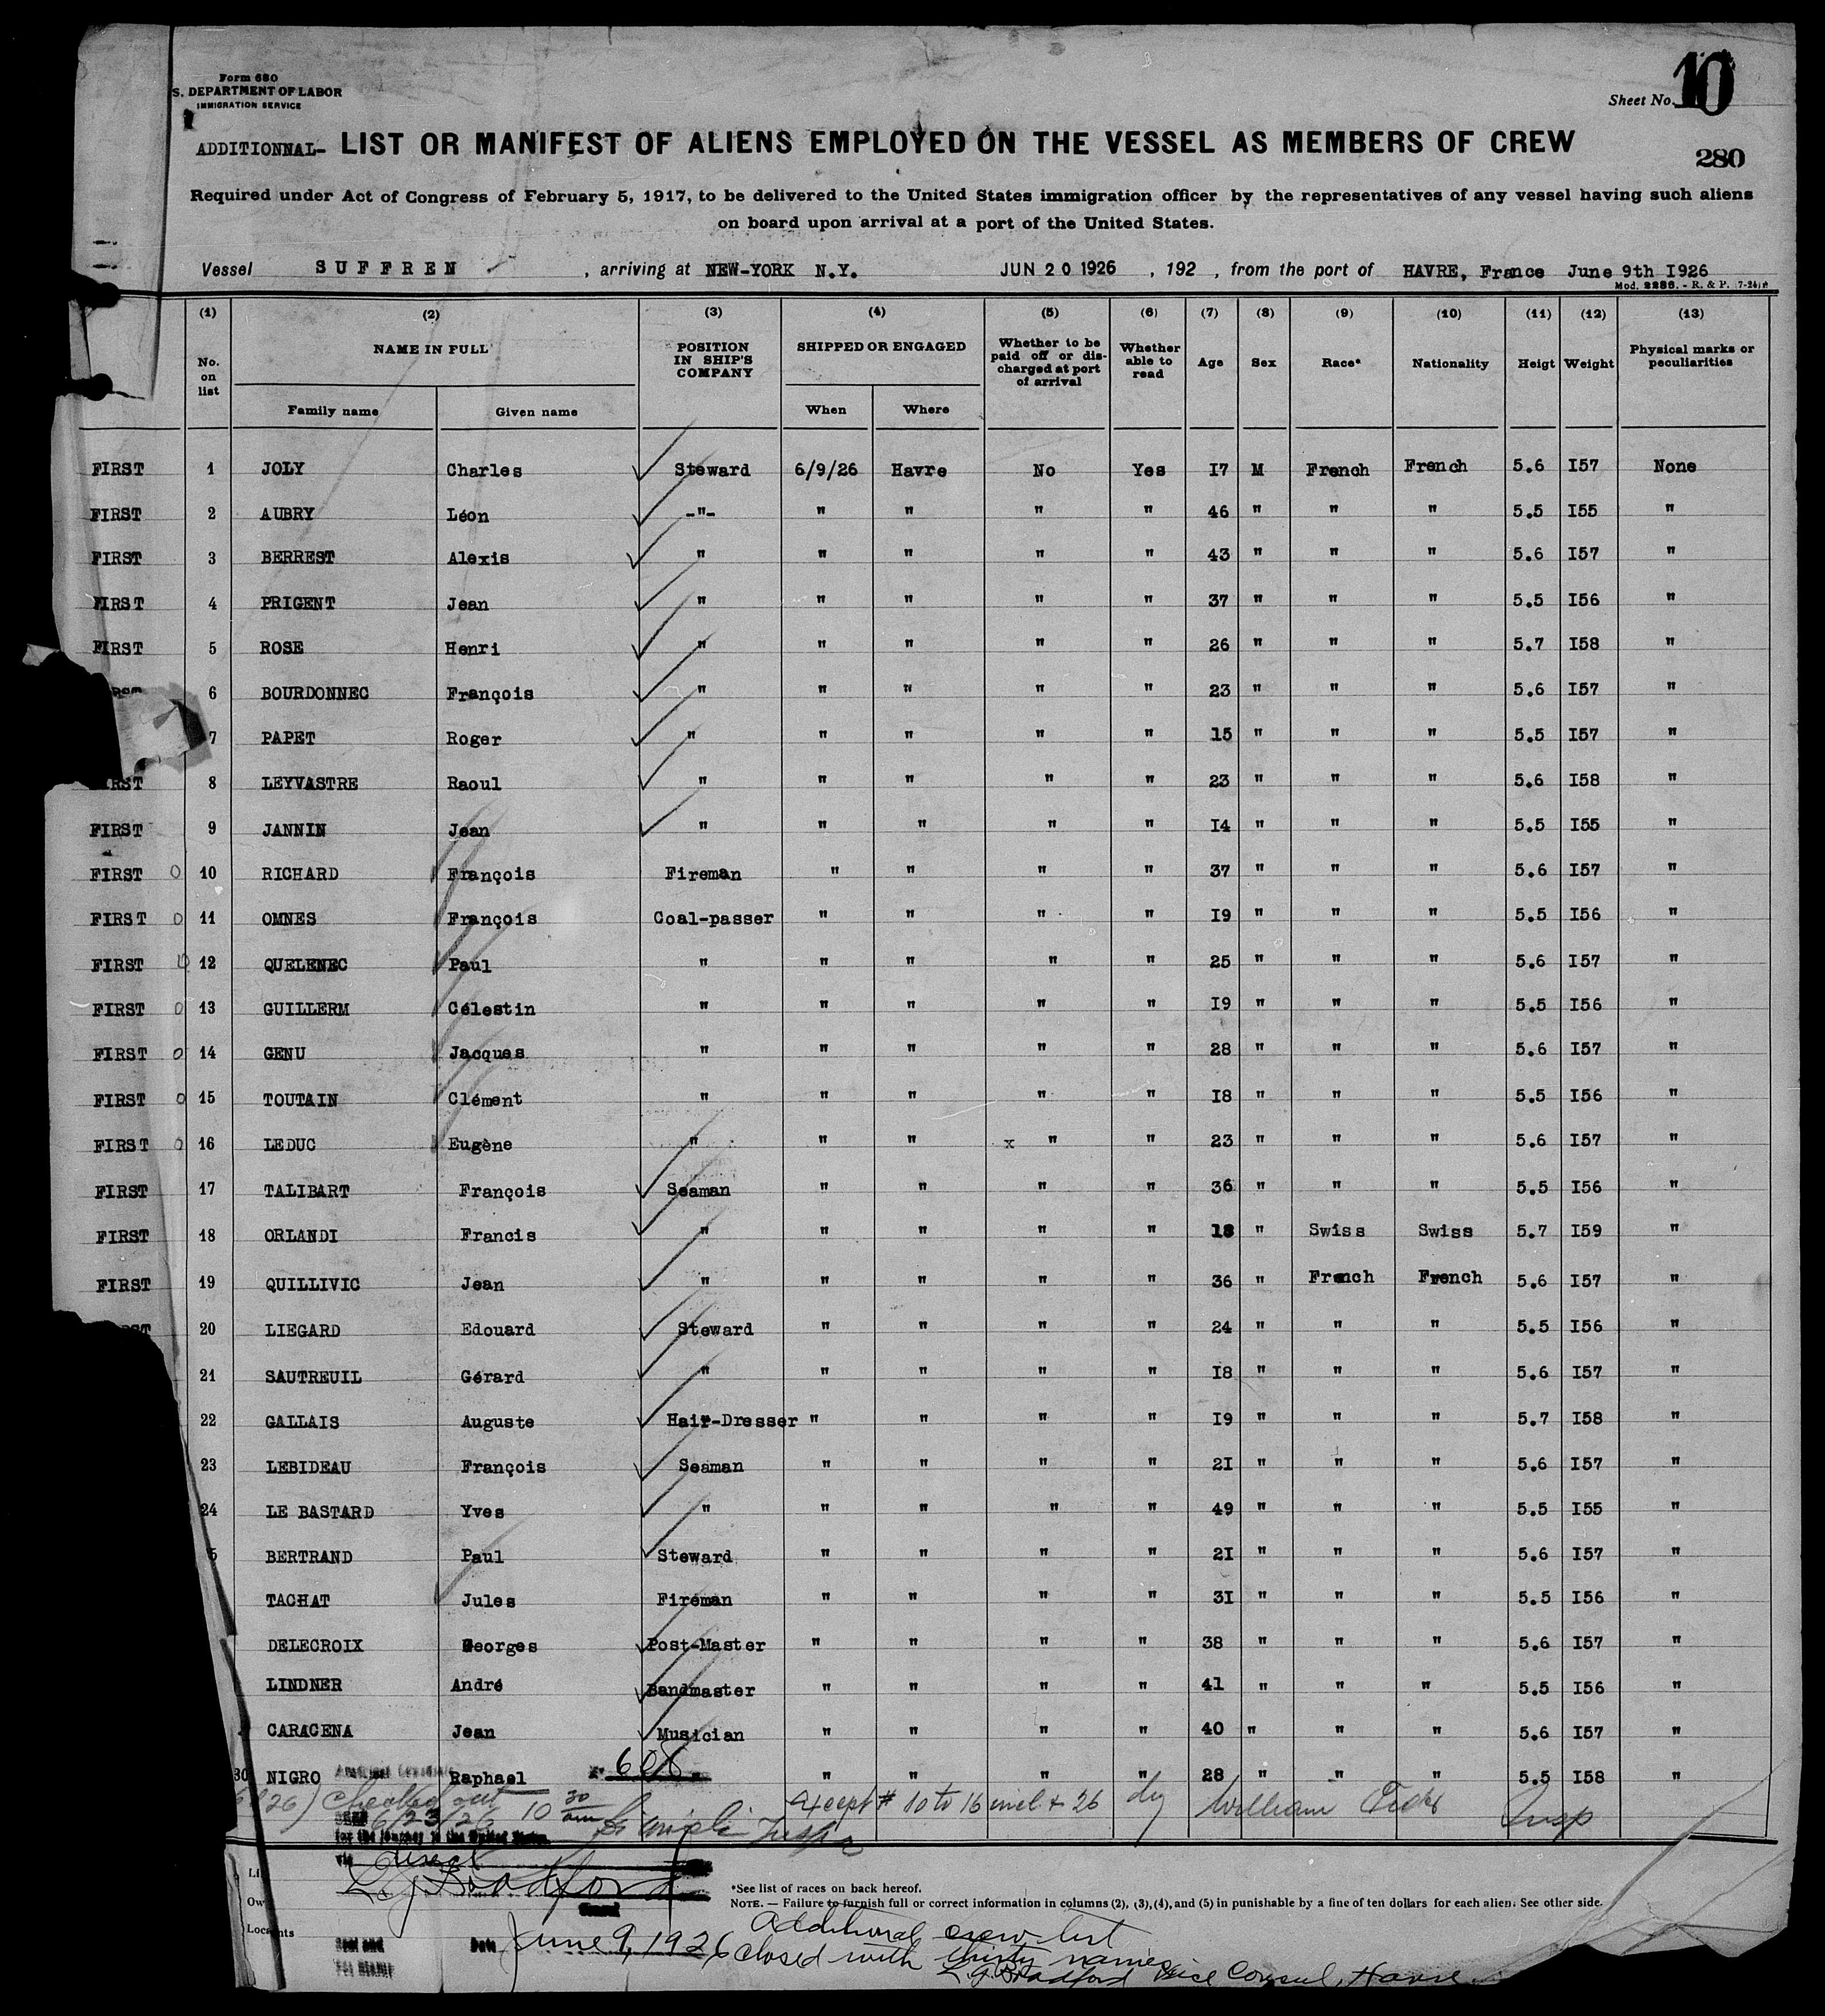 Form 680
S. DEPARTMENT OF LABOR
IMMIGRATION SERVICE
Sheet No. 10
ADDITIONNAL- LIST OR MANIFEST OF ALIENS EMPLOYED ON THE VESSEL AS MEMBERS OF CREW
280
Required under Act of Congress of February 5, 1917, to be delivered to the United States immigration officer by the representatives of any vessel having such aliens
on board upon arrival at a port of the United States.
Vessel SUFFREN , arriving at NEW-YORK N.Y. JUN 20 1926 , 192 , from the port of HAVRE, France June 9th I926
Mod. 2286. - R. & P. (7-24)
(1) (2) (3) (4) (5) (6) (7) (8) (9) (10) (11) (12) (13)
No. on list NAME IN FULL POSITION IN SHIP'S COMPANY SHIPPED OR ENGAGED Whether to be paid off or discharged at port of arrival Whether able to read Age Sex Race* Nationality Heigt Weight Physical marks or peculiarities
Family name Given name When Where
FIRST 1 JOLY Charles Steward 6/9/26 Havre No Yes I7 M French French 5.6 I57 None
FIRST 2 AUBRY Léon -"- " " " " 46 " " " 5.5 I55 "
FIRST 3 BERREST Alexis " " " " " 43 " " " 5.6 I57 "
FIRST 4 PRIGENT Jean " " " " " 37 " " " 5.5 I56 "
FIRST 5 ROSE Henri " " " " " 26 " " " 5.7 I58 "
6 BOURDONNEC François " " " " " 23 " " " 5.6 I57 "
7 PAPET Roger " " " " " 15 " " " 5.5 I57 "
RST 8 LEYVASTRE Raoul " " " " " 23 " " " 5.6 I58 "
FIRST 9 JANNIN Jean " " " " " I4 " " " 5.5 I55 "
FIRST 0 10 RICHARD François Fireman " " " " 37 " " " 5.6 I57 "
FIRST 0 11 OMNES François Coal-passer " " " " I9 " " " 5.5 I56 "
FIRST 0 12 QUELENEC Paul " " " " " 25 " " " 5.6 I57 "
FIRST 0 13 GUILLERM Célestin " " " " " I9 " " " 5.5 I56 "
FIRST 0 14 GENU Jacques " " " " " 28 " " " 5.6 I57 "
FIRST 0 15 TOUTAIN Clément " " " " " I8 " " " 5.5 I56 "
FIRST 0 16 LEDUC Eugène " " " x " " 23 " " " 5.6 I57 "
FIRST 17 TALIBART François Seaman " " " " 36 " " " 5.5 I56 "
FIRST 18 ORLANDI Francis " " " " " 18 " Swiss Swiss 5.7 I59 "
FIRST 19 QUILLIVIC Jean " " " " " 36 " French French 5.6 I57 "
20 LIEGARD Edouard Steward " " " " 24 " " " 5.5 I56 "
21 SAUTREUIL Gérard " " " " " I8 " " " 5.6 I57 "
22 GALLAIS Auguste Hair-Dresser " " " " I9 " " " 5.7 I58 "
23 LEBIDEAU François Seaman " " " " 2I " " " 5.6 I57 "
24 LE BASTARD Yves " " " " " 49 " " " 5.5 I55 "
5 BERTRAND Paul Steward " " " " 2I " " " 5.6 I57 "
TACHAT Jules Fireman " " " " 3I " " " 5.5 I56 "
DELECROIX Georges Post-Master " " " " 38 " " " 5.6 I57 "
LINDNER André Bandmaster " " " " 41 " " " 5.5 I56 "
CARACENA Jean Musician " " " " 40 " " " 5.6 I57 "
30 NIGRO Raphael 608 " " " " " 28 " " " 5.5 I58 "
Checked out 10 30 am Except # 10 to 16 incl + 26 by William Insp
6/23/26
for the journey to the United States
via direct
L G Bradford
*See list of races on back hereof.
NOTE. — Failure to furnish full or correct information in columns (2), (3), (4), and (5) in punishable by a fine of ten dollars for each alien. See other side.
Date June 9, 1926
Additional crew list
closed with thirty names
L G Bradford Vice Consul, Havre.